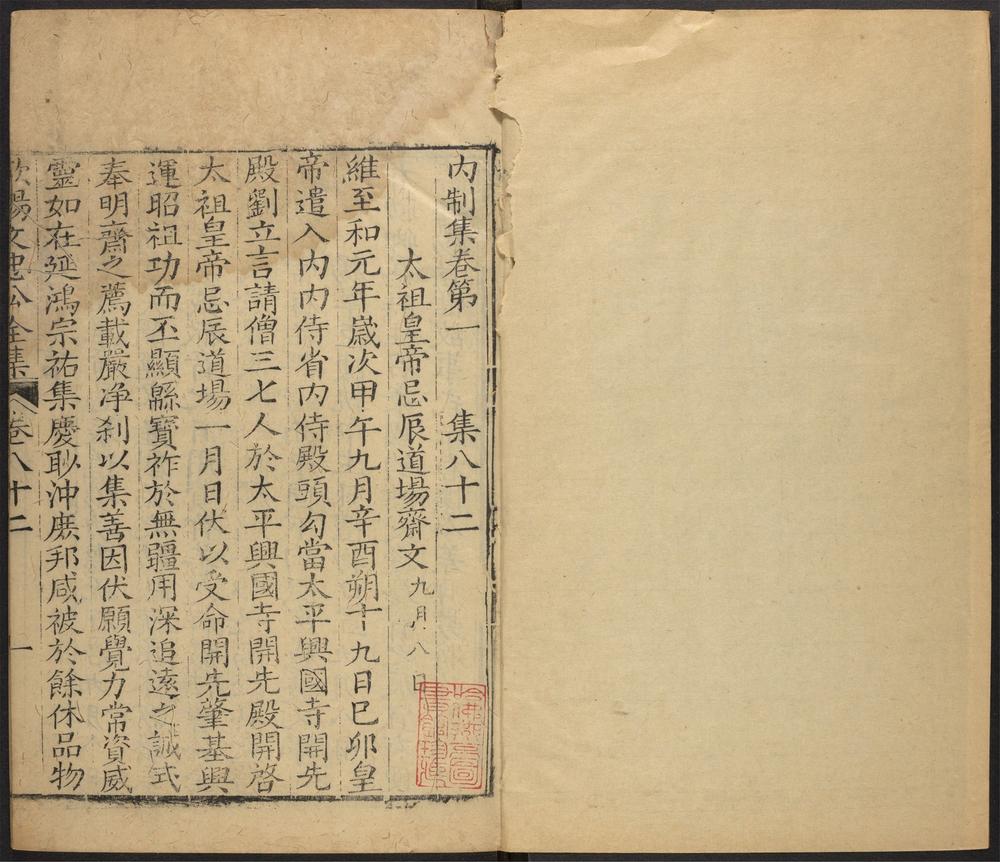 內制集卷第一　集八十二
太祖皇帝忌辰道場齋文九月八日
維至和元年歲次甲午九月辛酉朔十九日巳卯皇
帝遣入內內侍省內侍殿頭勾當太平興國寺開先
殿劉立言請僧三七人於太平興國寺開先殿開啓
太祖皇帝忌辰道場一月日伏以受命開先肇基興
運昭祖功而丕顯緜寳祚於無疆用深追遠之誠式
奉明齋之薦載嚴净刹以集善因伏願覺力常資威
靈如在延鴻宗祐集慶眇沖庶邦咸被於餘休品物
歐陽文忠公全集　卷八十二　一
哈佛漢和圖書館珍藏